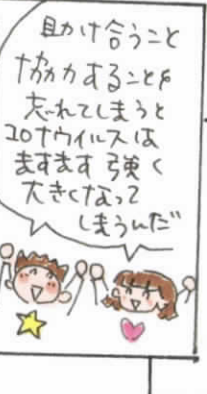 助け合うこと
協力することを
忘れてしまうと
コロナウイルスは
ますます強く
大きくなって
しまうんだ